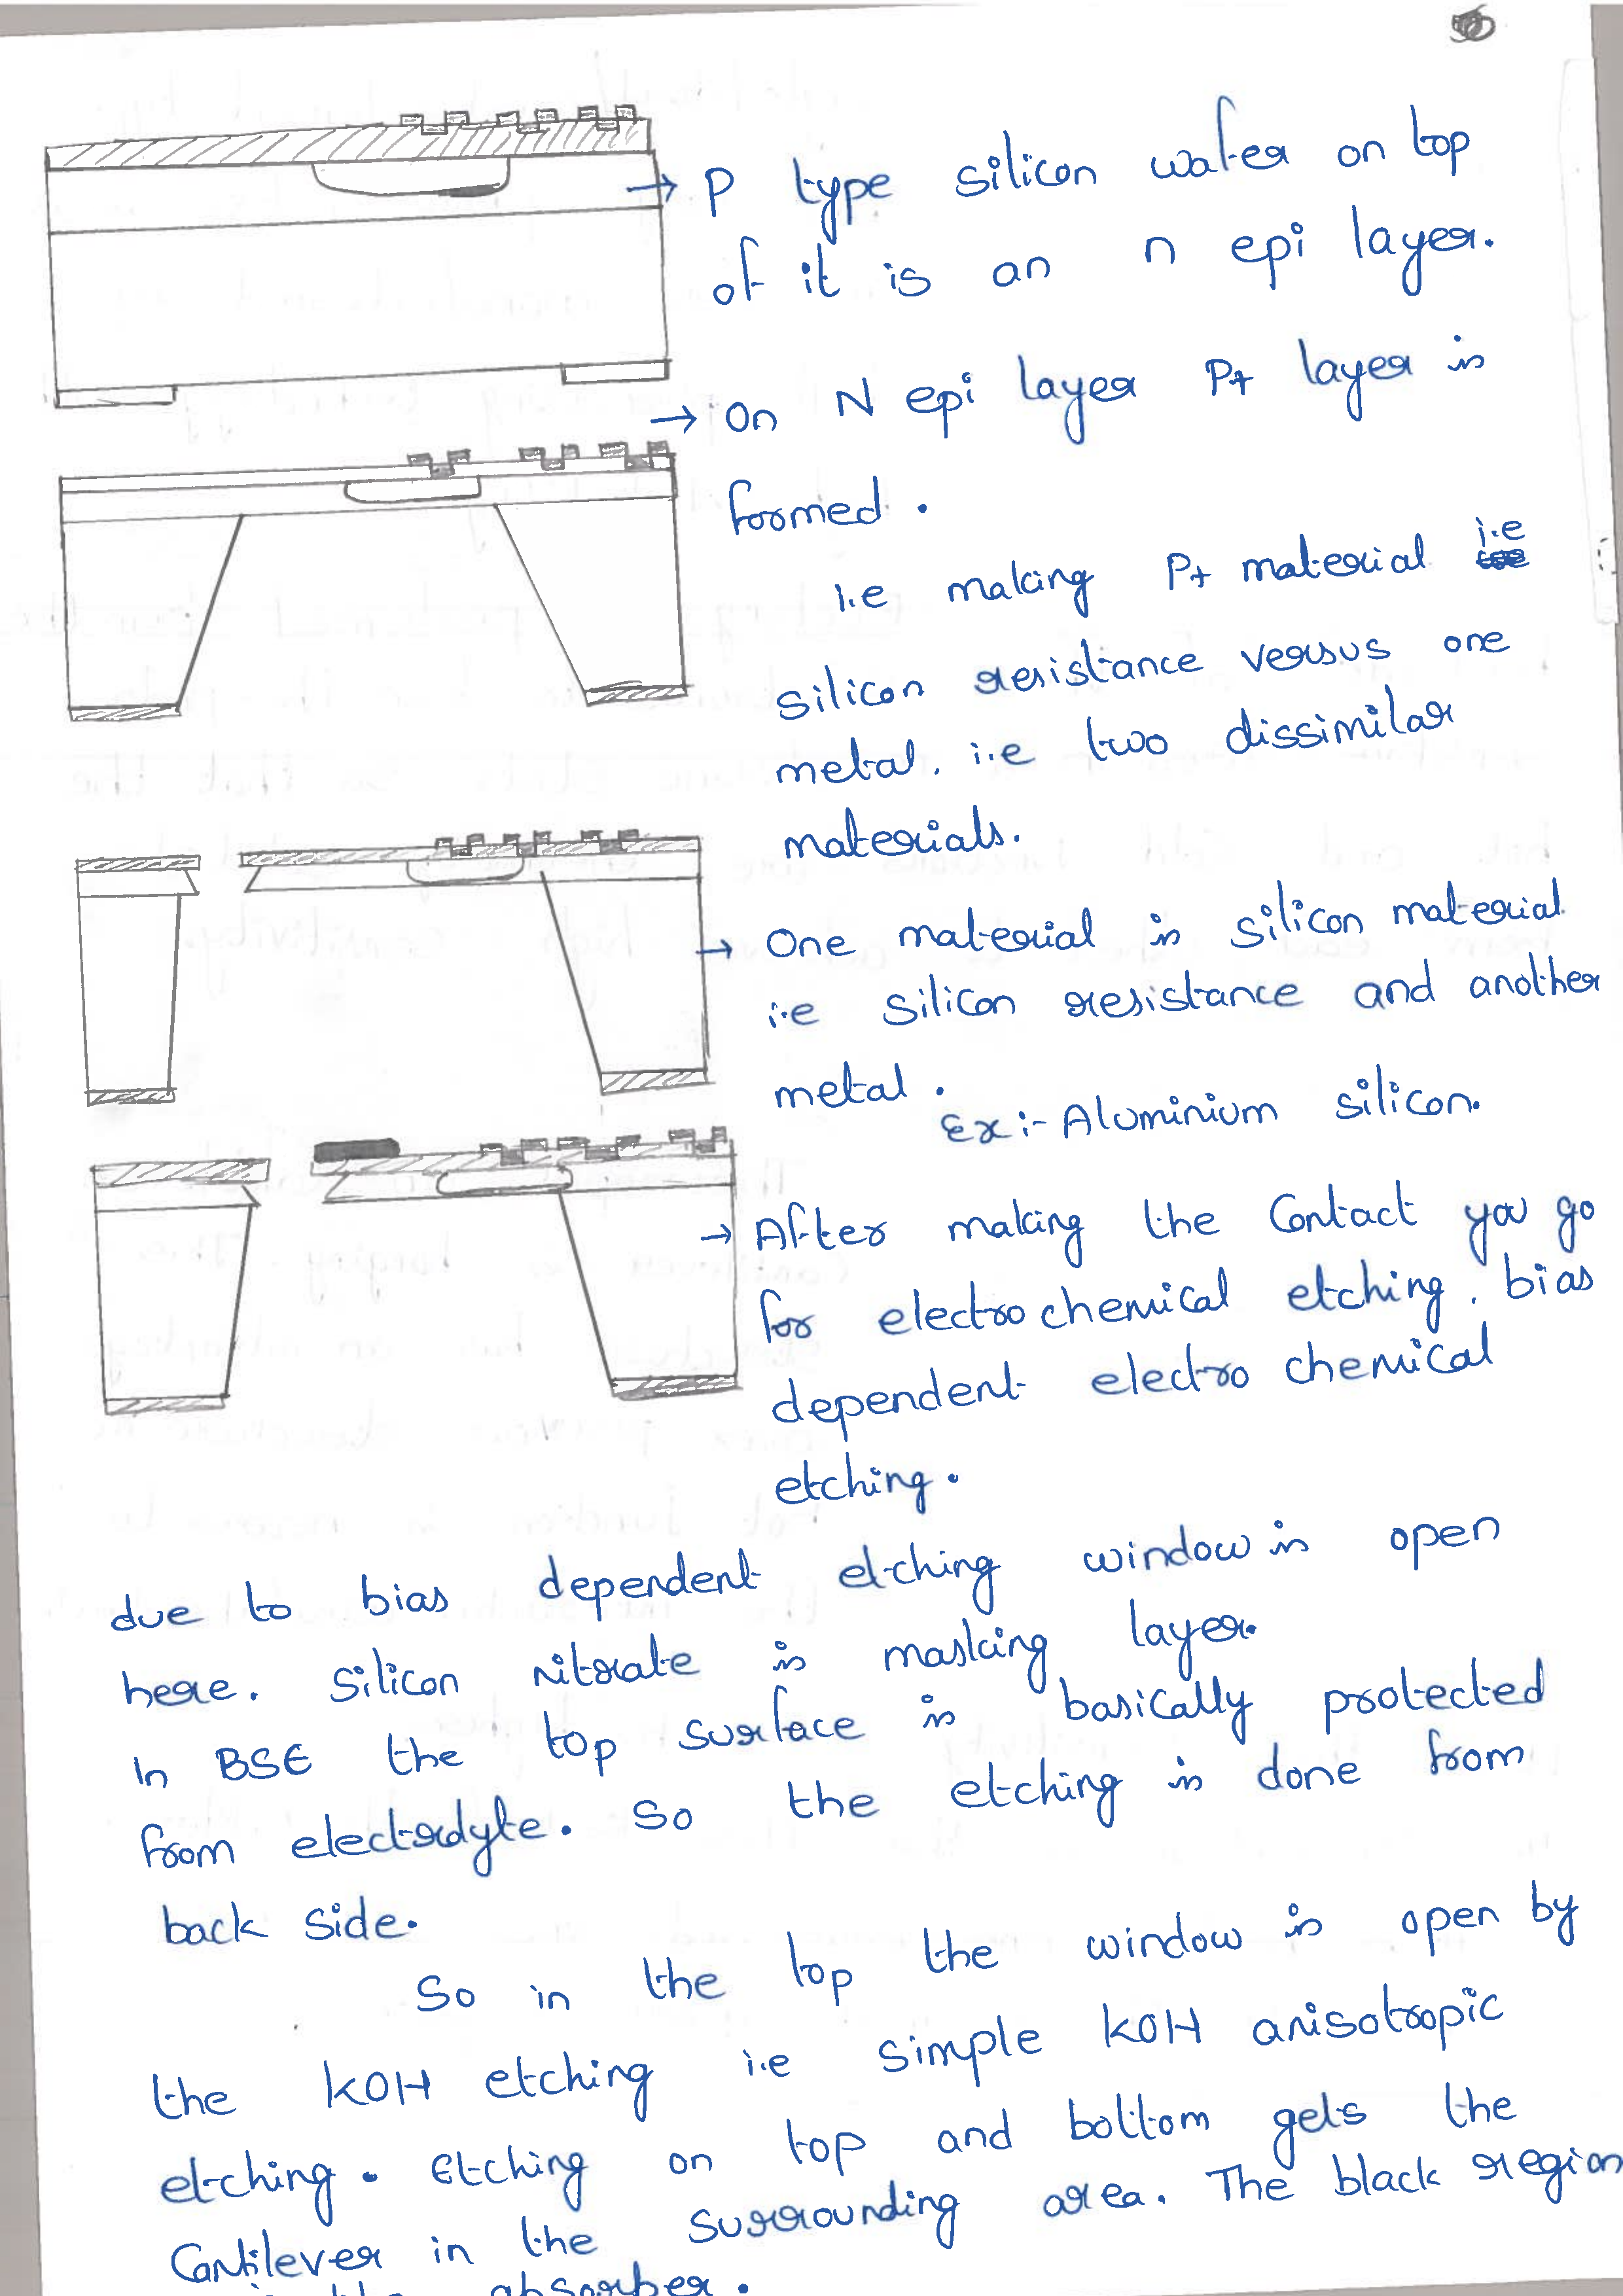 → P type silicon wafer on top
of it is an n epi layer.
→ On N epi layer P+ layer is
formed.
i.e making P+ material i.e
silicon resistance versus one
metal. i.e two dissimilar
materials.
→ One material is silicon material
i.e silicon resistance and another
metal.
Ex :- Aluminium silicon.
→ After making the Contact you go
for electrochemical etching. bias
dependent electro chemical
etching.
due to bias dependent etching window is open
here. Silicon nitrate is masking layer.
In BSE the top surface is basically protected
from electrolyte. So the etching is done from
back side.
So in the top the window is open by
the KOH etching i.e simple KOH anisotropic
etching. Etching on top and bottom gets the
Cantilever in the surrounding area. The black region
absorber.